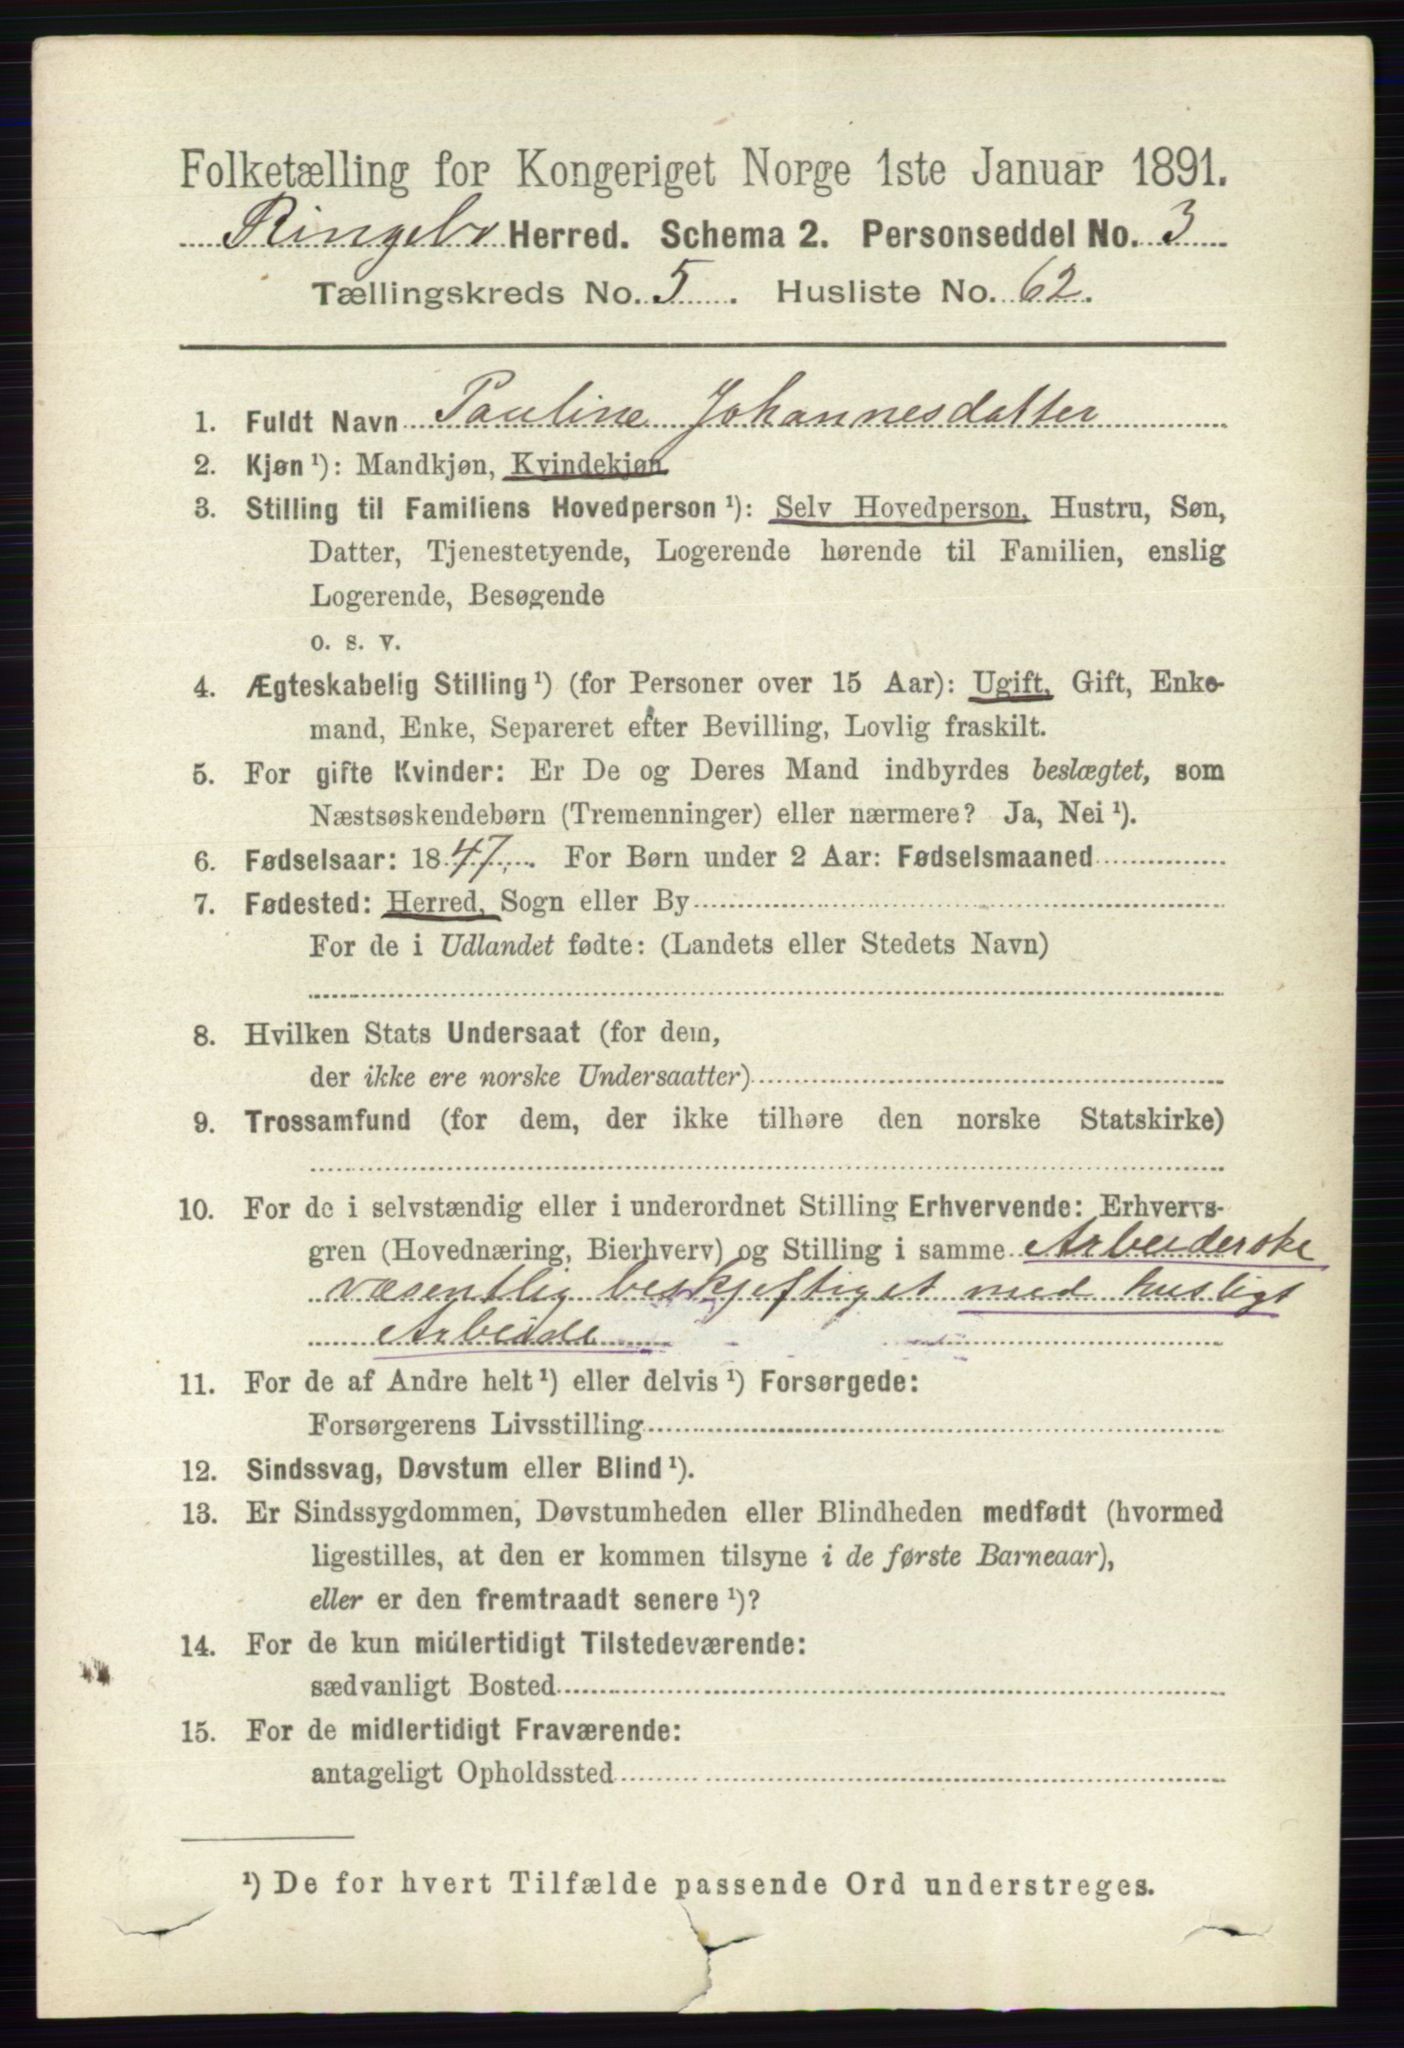 Folketælling for Kongeriget Norge 1ste Januar 1891.
Ringebo Herred. Schema 2. Personseddel No. 3
Tællingskreds No. 5. Husliste No. 62.
1. Fuldt Navn Pauline Johannesdatter
2. Kjøn¹): Mandkjøn, Kvindekjøn
3. Stilling til Familiens Hovedperson¹): Selv Hovedperson, Hustru, Søn,
Datter, Tjenestetyende, Logerende hørende til Familien, enslig
Logerende, Besøgende
o. s. v.
4. Ægteskabelig Stilling¹) (for Personer over 15 Aar): Ugift, Gift, Enke-
mand, Enke, Separeret efter Bevilling, Lovlig fraskilt.
5. For gifte Kvinder: Er De og Deres Mand indbyrdes beslægtet, som
Næstsøskendebørn (Tremenninger) eller nærmere? Ja, Nei¹).
6. Fødselsaar: 1847. For Børn under 2 Aar: Fødselsmaaned
7. Fødested: Herred, Sogn eller By
For de i Udlandet fødte: (Landets eller Stedets Navn)
8. Hvilken Stats Undersaat (for dem,
der ikke ere norske Undersaatter)
9. Trossamfund (for dem, der ikke tilhøre den norske Statskirke)
10. For de i selvstændig eller i underordnet Stilling Erhvervende: Erhvervs-
gren (Hovednæring, Bierhverv) og Stilling i samme Arbeiderske
væsentlig beskjeftiget med husligt
Arbeide
11. For de af Andre helt¹) eller delvis¹) Forsørgede:
Forsørgerens Livsstilling
12. Sindssvag, Døvstum eller Blind¹).
13. Er Sindssygdommen, Døvstumheden eller Blindheden medfødt (hvormed
ligestilles, at den er kommen tilsyne i de første Barneaar),
eller er den fremtraadt senere¹)?
14. For de kun midlertidigt Tilstedeværende:
sædvanligt Bosted
15. For de midlertidigt Fraværende:
antageligt Opholdssted
¹) De for hvert Tilfælde passende Ord understreges.